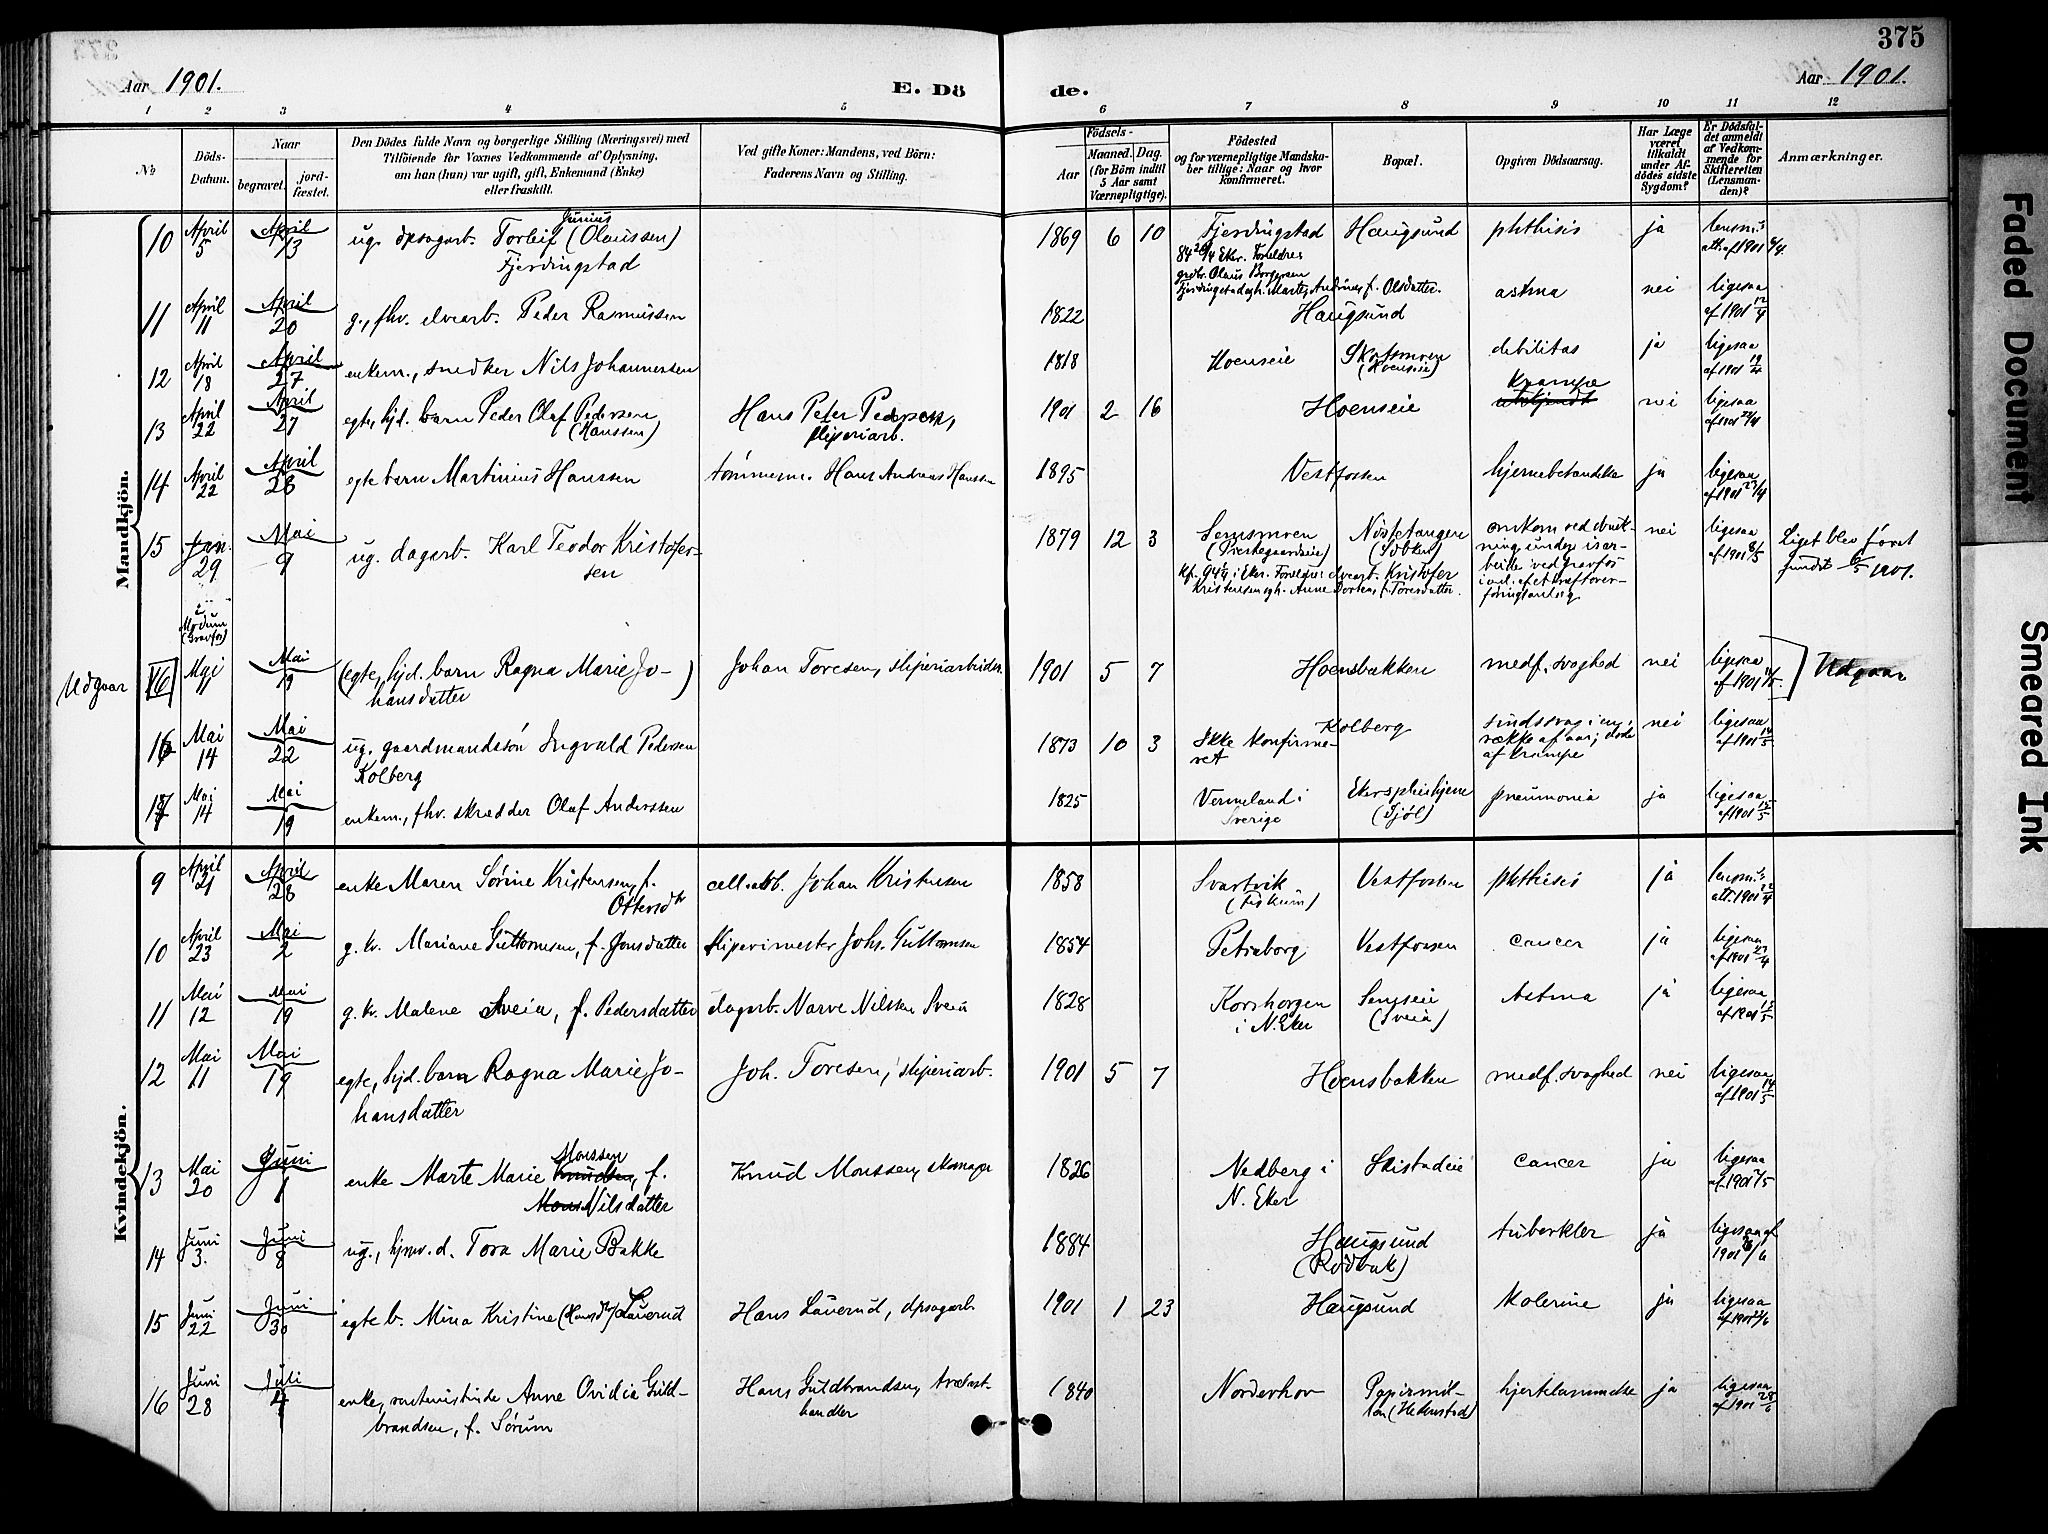 375
Aar 1901.
E. Dö
de.
Aar 1901.
1 2 3 4 5 6 7 8 9 10 11 12
No
Döds-
Datum.
Naar
begravet.
jord-
fæstet.
Den Dödes fulde Navn og borgerlige Stilling (Næringsvei) med
Tilföiende for Voxnes Vedkommende af Oplysning,
om han (hun) var ugift, gift, Enkemand (Enke)
eller fraskilt.
Ved gifte Koner: Mandens, ved Börn:
Faderens Navn og Stilling.
Födsels-
Aar
Maaned.
Dag.
(for Börn indtil
5 Aar samt
Værnepligtige).
Födested
og for værnepligtige Mandska-
ber tillige: Naar og hvor
konfirmeret.
Bopæl.
Opgiven Dödsaarsag.
Har Læge
været
tilkaldt
under Af-
dödes sidste
Sygdom?
Er Dödsfal-
det anmeldt
af Vedkom-
mende for
Skifteretten
(Lensman-
den)?
Anmærkninger.
Mandkjön.
10 April 5 April 13 ug. dpsagarb. Torleif Junius (Olaussen) Fjerdingstad 1869 6 10 Fjerdingstad Haugsund phthisis ja
11 April 11 April 20 g., fhv. elvearb. Peder Rasmussen 1822 Haugsund astma nei ligesaa af 1901 12/4
12 April 18 April 27 enkem., snedker Nils Johannessen 1818 Hoenseie (Hoenseie) debilitas ja ligesaa af 1901 19/4
13 April 22 April 27 egte, hjd. barn Peder Olaf Pedersen (Hanssen) Hans Peter Pedersen, sliperiarb. 1901 2 16 Hoenseie Krampe nei ligesaa
14 April 22 April 28 egte barn Martinius Hanssen tømmerm. Hans Andreas Hanssen 1895 Vestfossen hjernebetændelse ja ligesaa af 1901 23/4
15 Jan. 29 i Modum (Gravfos) Mai 9 ug. dagarb. Karl Teodor Kristofersen 1879 12 3 Semsmoen (Præstegaardseie) omkom ved drukning under isarbeide ved gravfos nei ligesaa af 1901 8/5 Liget blev først fundet 6/5 1901.
Udgaar 16 Mai 11 Mai 19 (egte, hjd. barn Ragna Marie Johansdatter) Johan Toresen, sliperiarbeider 1901 5 7 Hoensbakken medf. svaghed nei ligesaa Udgaar
16 Mai 14 Mai 22 ug. gaardmandssøn Ingvald Pedersen Kolberg 1873 10 3 Ikke konfirmeret Kolberg sindssvag i en række af aar; døde af krampe nei ligesaa af 1901 14/5
17 Mai 14 Mai 19 enkem., fhv. skrædder Olaf Anderssen 1825 Vermeland i Sverige Ekers pleiehjem pneumonia ja ligesaa af 1901 15/5
Kvindekjön.
9 April 21 April 28 enke Maren Sørine Kristensen, f. Ottersdtr cell.arb. Johan Kristensen 1858 Svartvik (Fiskum) Vestfossen phthisis ja
10 April 23 Mai 2 g. kv. Mariane Guttormsen, f. Jonsdatter sliperimester Johs. Guttormsen 1854 Petersborg Vestfossen cancer ja ligesaa
11 Mai 12 Mai 19 g. kv. Malene Sveia, f. Pedersdatter dagarb. Narve Nilssen Sveia 1828 Korshorgen i N. Eker Semseie (Sveia) Astma ja ligesaa af 1901 15/5
12 Mai 11 Mai 19 egte, hjd. barn Ragna Marie Johansdatter Joh. Toresen, sliperiarb. 1901 5 7 Hoensbakken medf. svaghed nei ligesaa af 1901 14/5
13 Mai 20 Juni 1 enke Marte Marie Monssen Knudsen, f. Mons Nilsdatter Knud Monssen, skomager 1826 Nedberg i N. Eker Skistadeie cancer ja ligesaa
14 Juni 3. Juni 8 ug., hjmv. d. Tora Marie Bakke 1884 Haugsund tuberkler ja ligesaa af 1901
15 Juni 22 Juni 30 egte b. Mina Kristine (Hansdtr) Lauerud Hans Lauerud, dpsagarb. 1901 1 23 Haugsund Kolerine ja ligesaa
16 Juni 28 Juli 4 enke, rentenistinde Anne Ovidia Guldbrandsen, f. Sørum Hans Guldbrandsen, trælasthandler 1840 Norderhov hjertelammelse ja ligesaa af 1901 28/6
Faded Document
Smeared Ink